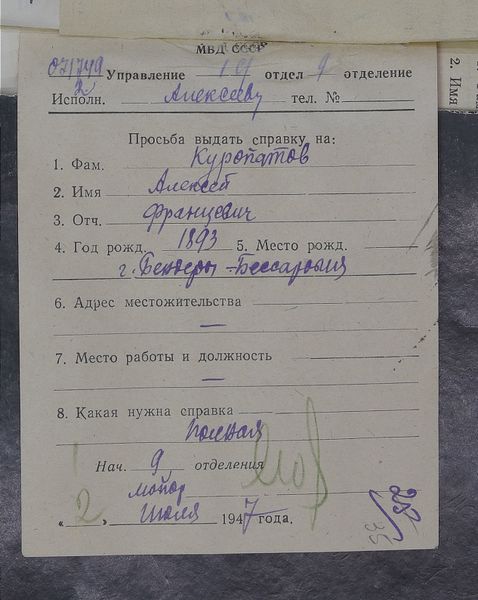 МВД СССР
071749
2
Управление 1 отдел 9 отделение
Исполн. Алексеев тел. №
Просьба выдать справку на:
1. Фам. Куропатов
2. Имя Алексей
3. Отч. Францевич
4. Год рожд. 1893 5. Место рожд.
г. Бендеры - Бессарабия
6. Адрес местожительства
—
7. Место работы и должность
—
8. Какая нужна справка
полная
Нач. 9 отделения
майор
« 2 » июля 1947 года.
2. Имя